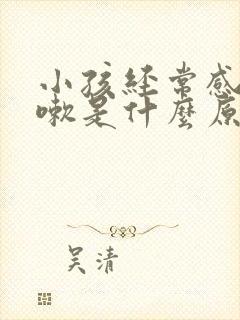 小孩經常感
嗽是什麼原
吴清